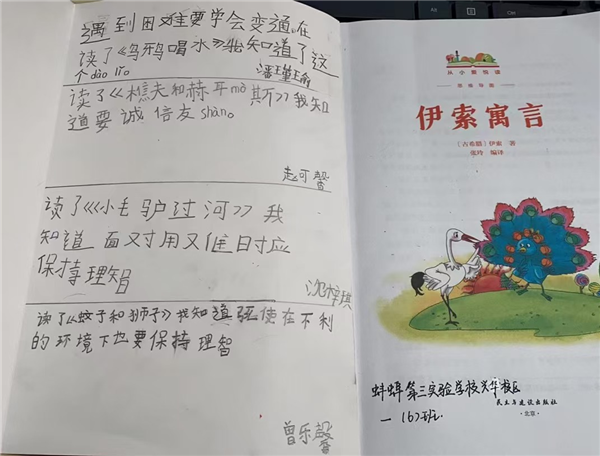 遇到困难要学会变通,在
读了《乌鸦喝水》我知道了这
个dào lǐ。
读了《樵夫和赫耳mò斯》我知
道要诚信友shàn。
赵可馨
读了《小毛驴过河》我
知道 面对困难时应
保持理智
沈梓琪
读了《蚊子和狮子》我知道强使在不利
的环境下也要保持理智
曾乐馨
从小爱悦读
伊索寓言
〔古希腊〕伊索 著
张玲 编译
蚌埠第三实验学校兴华校区
民主与建设出版社
·北京·
一(6)班